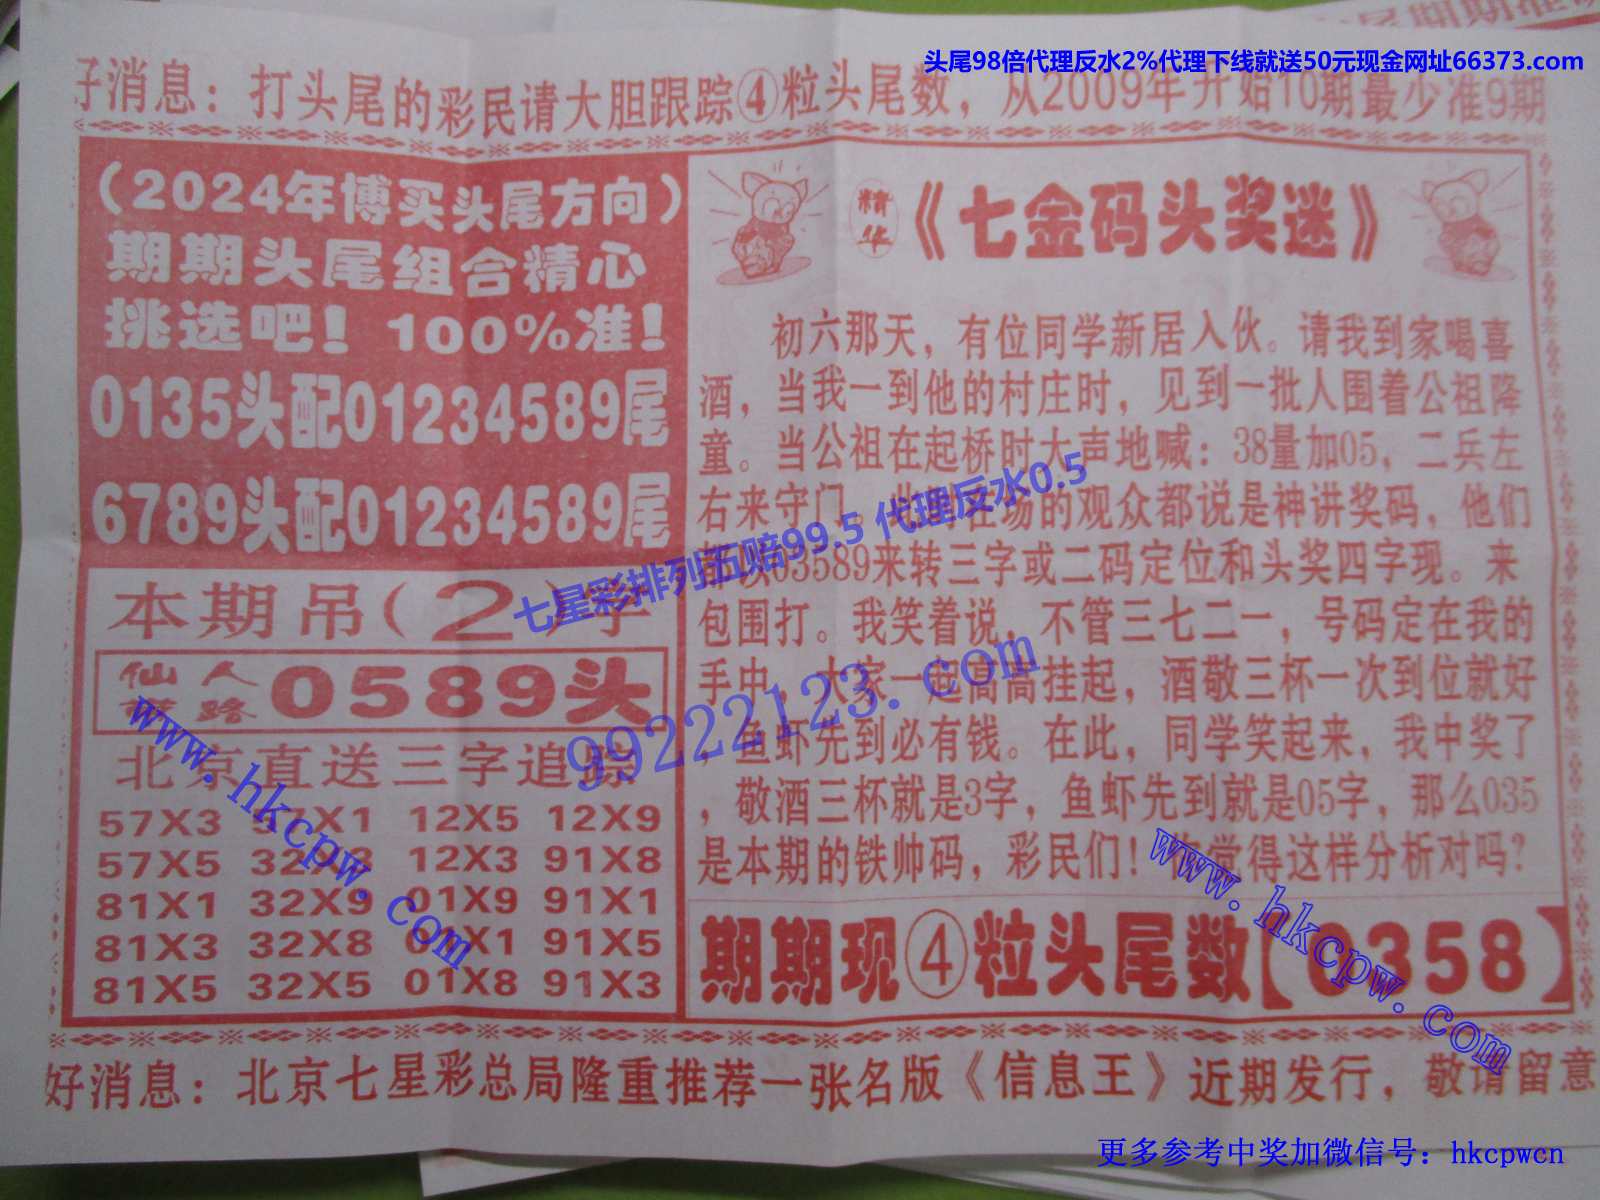 头尾98倍代理反水2%代理下线就送50元现金网址66373.com
好消息：打头尾的彩民请大胆跟踪④粒头尾数，从2009年开始10期最少准9期
（2024年博买头尾方向）
期期头尾组合精心
挑选吧！100%准！
0135头配01234589尾
6789头配01234589尾
本期吊（2）字
仙人 路 0589头
北京直送三字追踪
57X3 X1 12X5 12X9
57X5 32X 12X3 91X8
81X1 32X9 01X9 91X1
81X3 32X8 01X1 91X5
81X5 32X5 01X8 91X3
精华《七金码头奖迷》
初六那天，有位同学新居入伙。请我到家喝喜
酒，当我一到他的村庄时，见到一批人围着公祖降
童。当公祖在起桥时大声地喊：38量加05，二兵左
右来守门。此时在场的观众都说是神讲奖码，他们
03589来转三字或二码定位和头奖四字现。来
包围打。我笑着说，不管三七二一，号码定在我的
手中，大家一起高高挂起，酒敬三杯一次到位就好
，鱼虾先到必有钱。在此，同学笑起来，我中奖了
，敬酒三杯就是3字，鱼虾先到就是05字，那么035
是本期的铁帅码，彩民们！你觉得这样分析对吗？
期期现④粒头尾数【0358】
好消息：北京七星彩总局隆重推荐一张名版《信息王》近期发行，敬请留意
七星彩排列五赔99.5 代理反水0.5
99222123.com
www.hkcpw.com
www.hkcpw.com
更多参考中奖加微信号：hkcpwcn